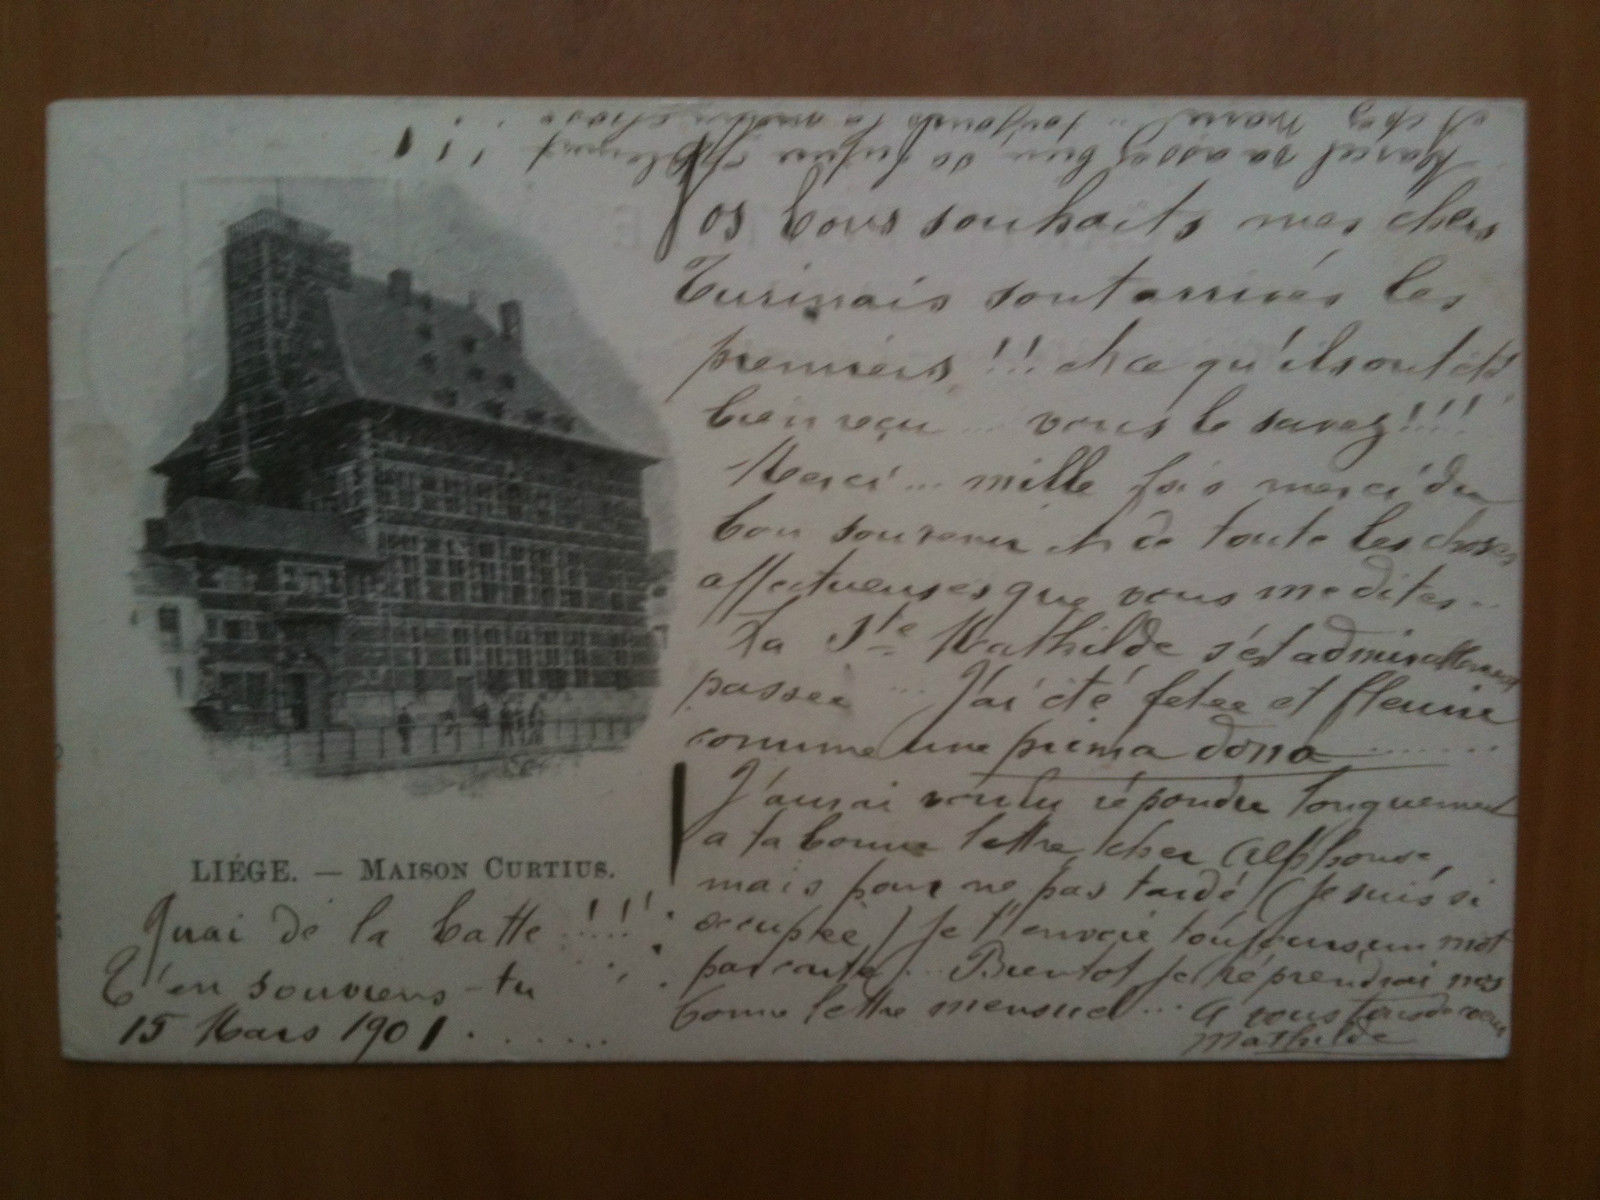 Vos bons souhaits mes chers
Turinais sont arrivés les
premiers !!! et ce qu'ils ont été
bien reçu ... vous le savez !!!!
Merci ... mille fois merci du
bon souvenir et de toute les choses
affectueuses que vous me dites ..
La Ste Mathilde s'est admirablement
passée ... J'ai été fetée et fleurie
comme une prima donna ........
J'aurai voulu répondre longuement
a ta bonne lettre cher Alphonse,
mais pour ne pas tardé (je suis si
occupée) je t'envoie toujours un mot
par carte ... Bientot je réprendrai nos
bonne lettre mensuel ... A vous tous de cœur
Mathilde
Marcel va assez bien sa
et chez Marie .. toujours la même chose ..
LIÉGE. — MAISON CURTIUS.
Quai de la batte !!!!
T'en souviens-tu
15 Mars 1901 . . . . . .